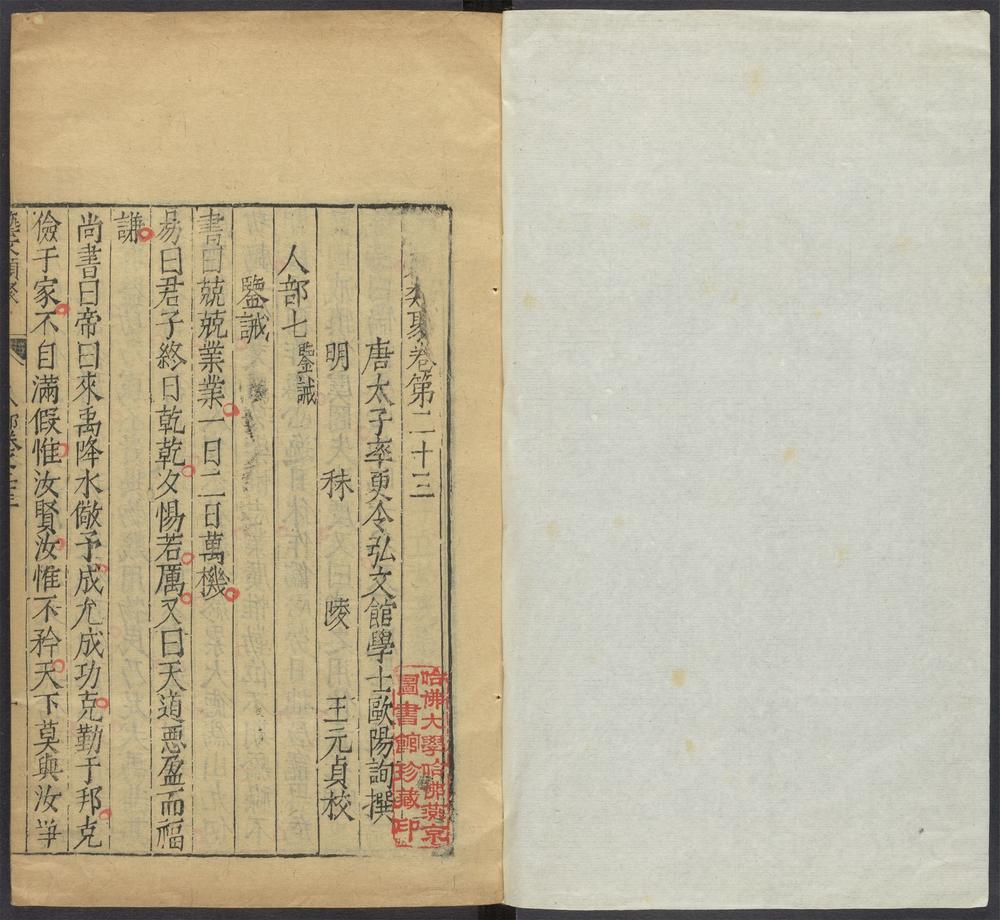 類聚卷第二十三
唐太子率更令弘文館學士歐陽詢撰
明 秣 陵 王元貞校
人部七 鑒誡
鑒誡
書曰兢兢業業一日二日萬機
易曰君子終日乾乾夕惕若厲又曰天道惡盈而福
謙
尚書曰帝曰來禹降水儆予成允成功克勤于邦克
儉于家不自滿假惟汝賢汝惟不矜天下莫與汝爭
藝文類聚 人部卷之二十三 一
哈佛大學哈佛燕京
圖書館珍藏印